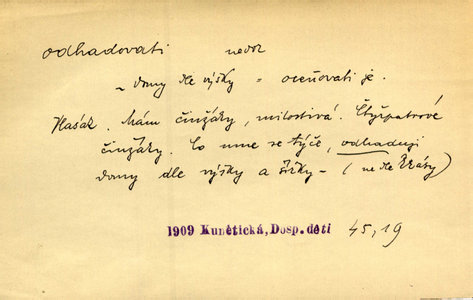 odhadovati nedok
~ domy dle výšky = oceňovati je.
Hlasák. Mám činžáky, milostivá. Čtyřpatrové
činžáky. Co mne se týče, odhaduji
domy dle výšky a šířky – (ne dle krásy)
1909 Kunětická, Dosp. děti 45, 19